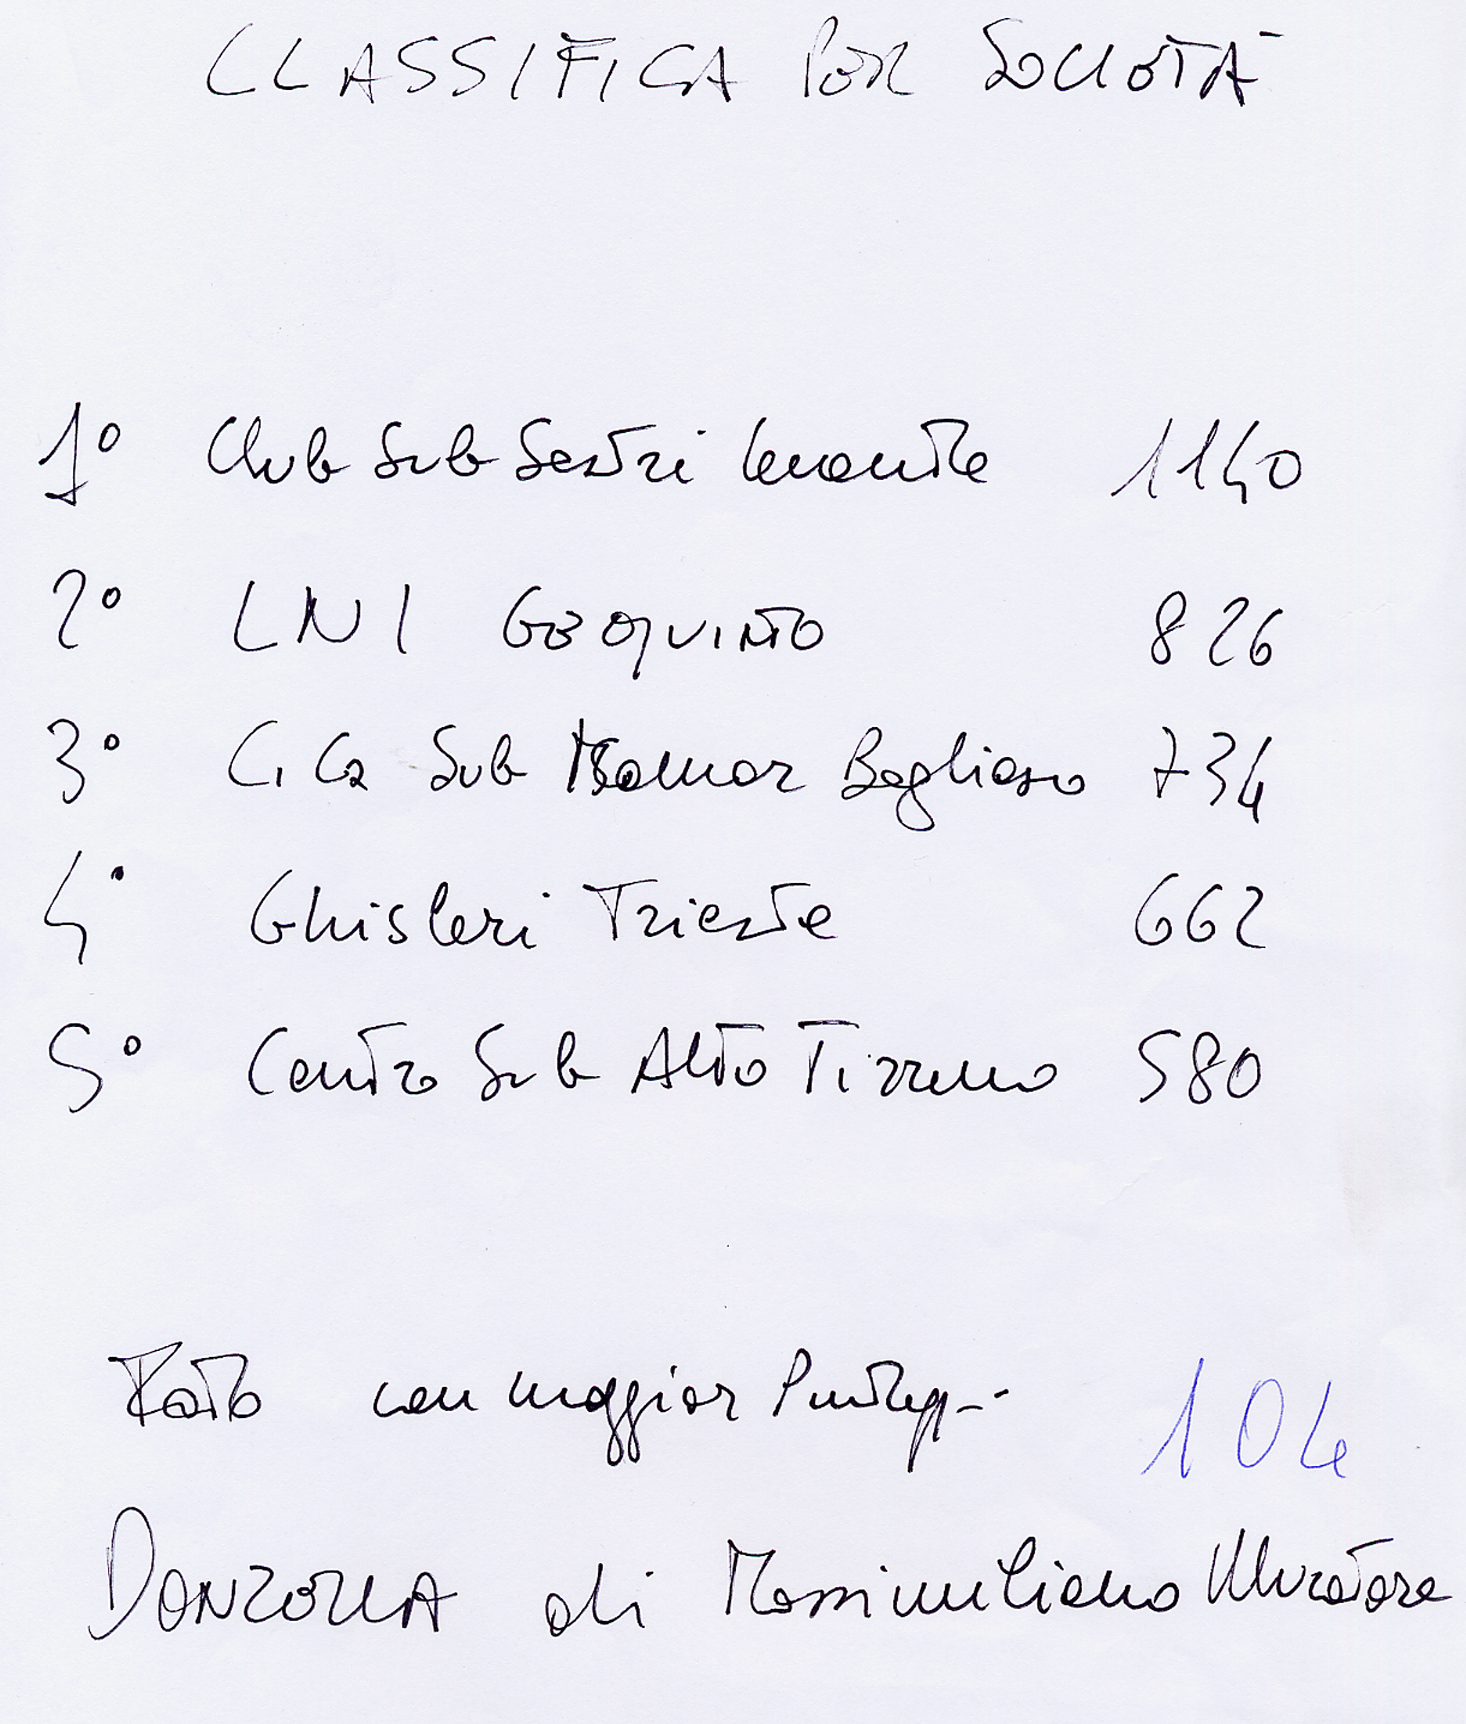 CLASSIFICA PER SOCIETÀ
1° Club Sub Sestri Levante 1140
2° LNI GE QUINTO 826
3° Ci Ca Sub Bogliasco 734
4° Ghisleri Trieste 662
5° Centro Sub Alto Tirreno 580
Foto con maggior Punteg-- 104
DONZELLA di Massimiliano Muratore